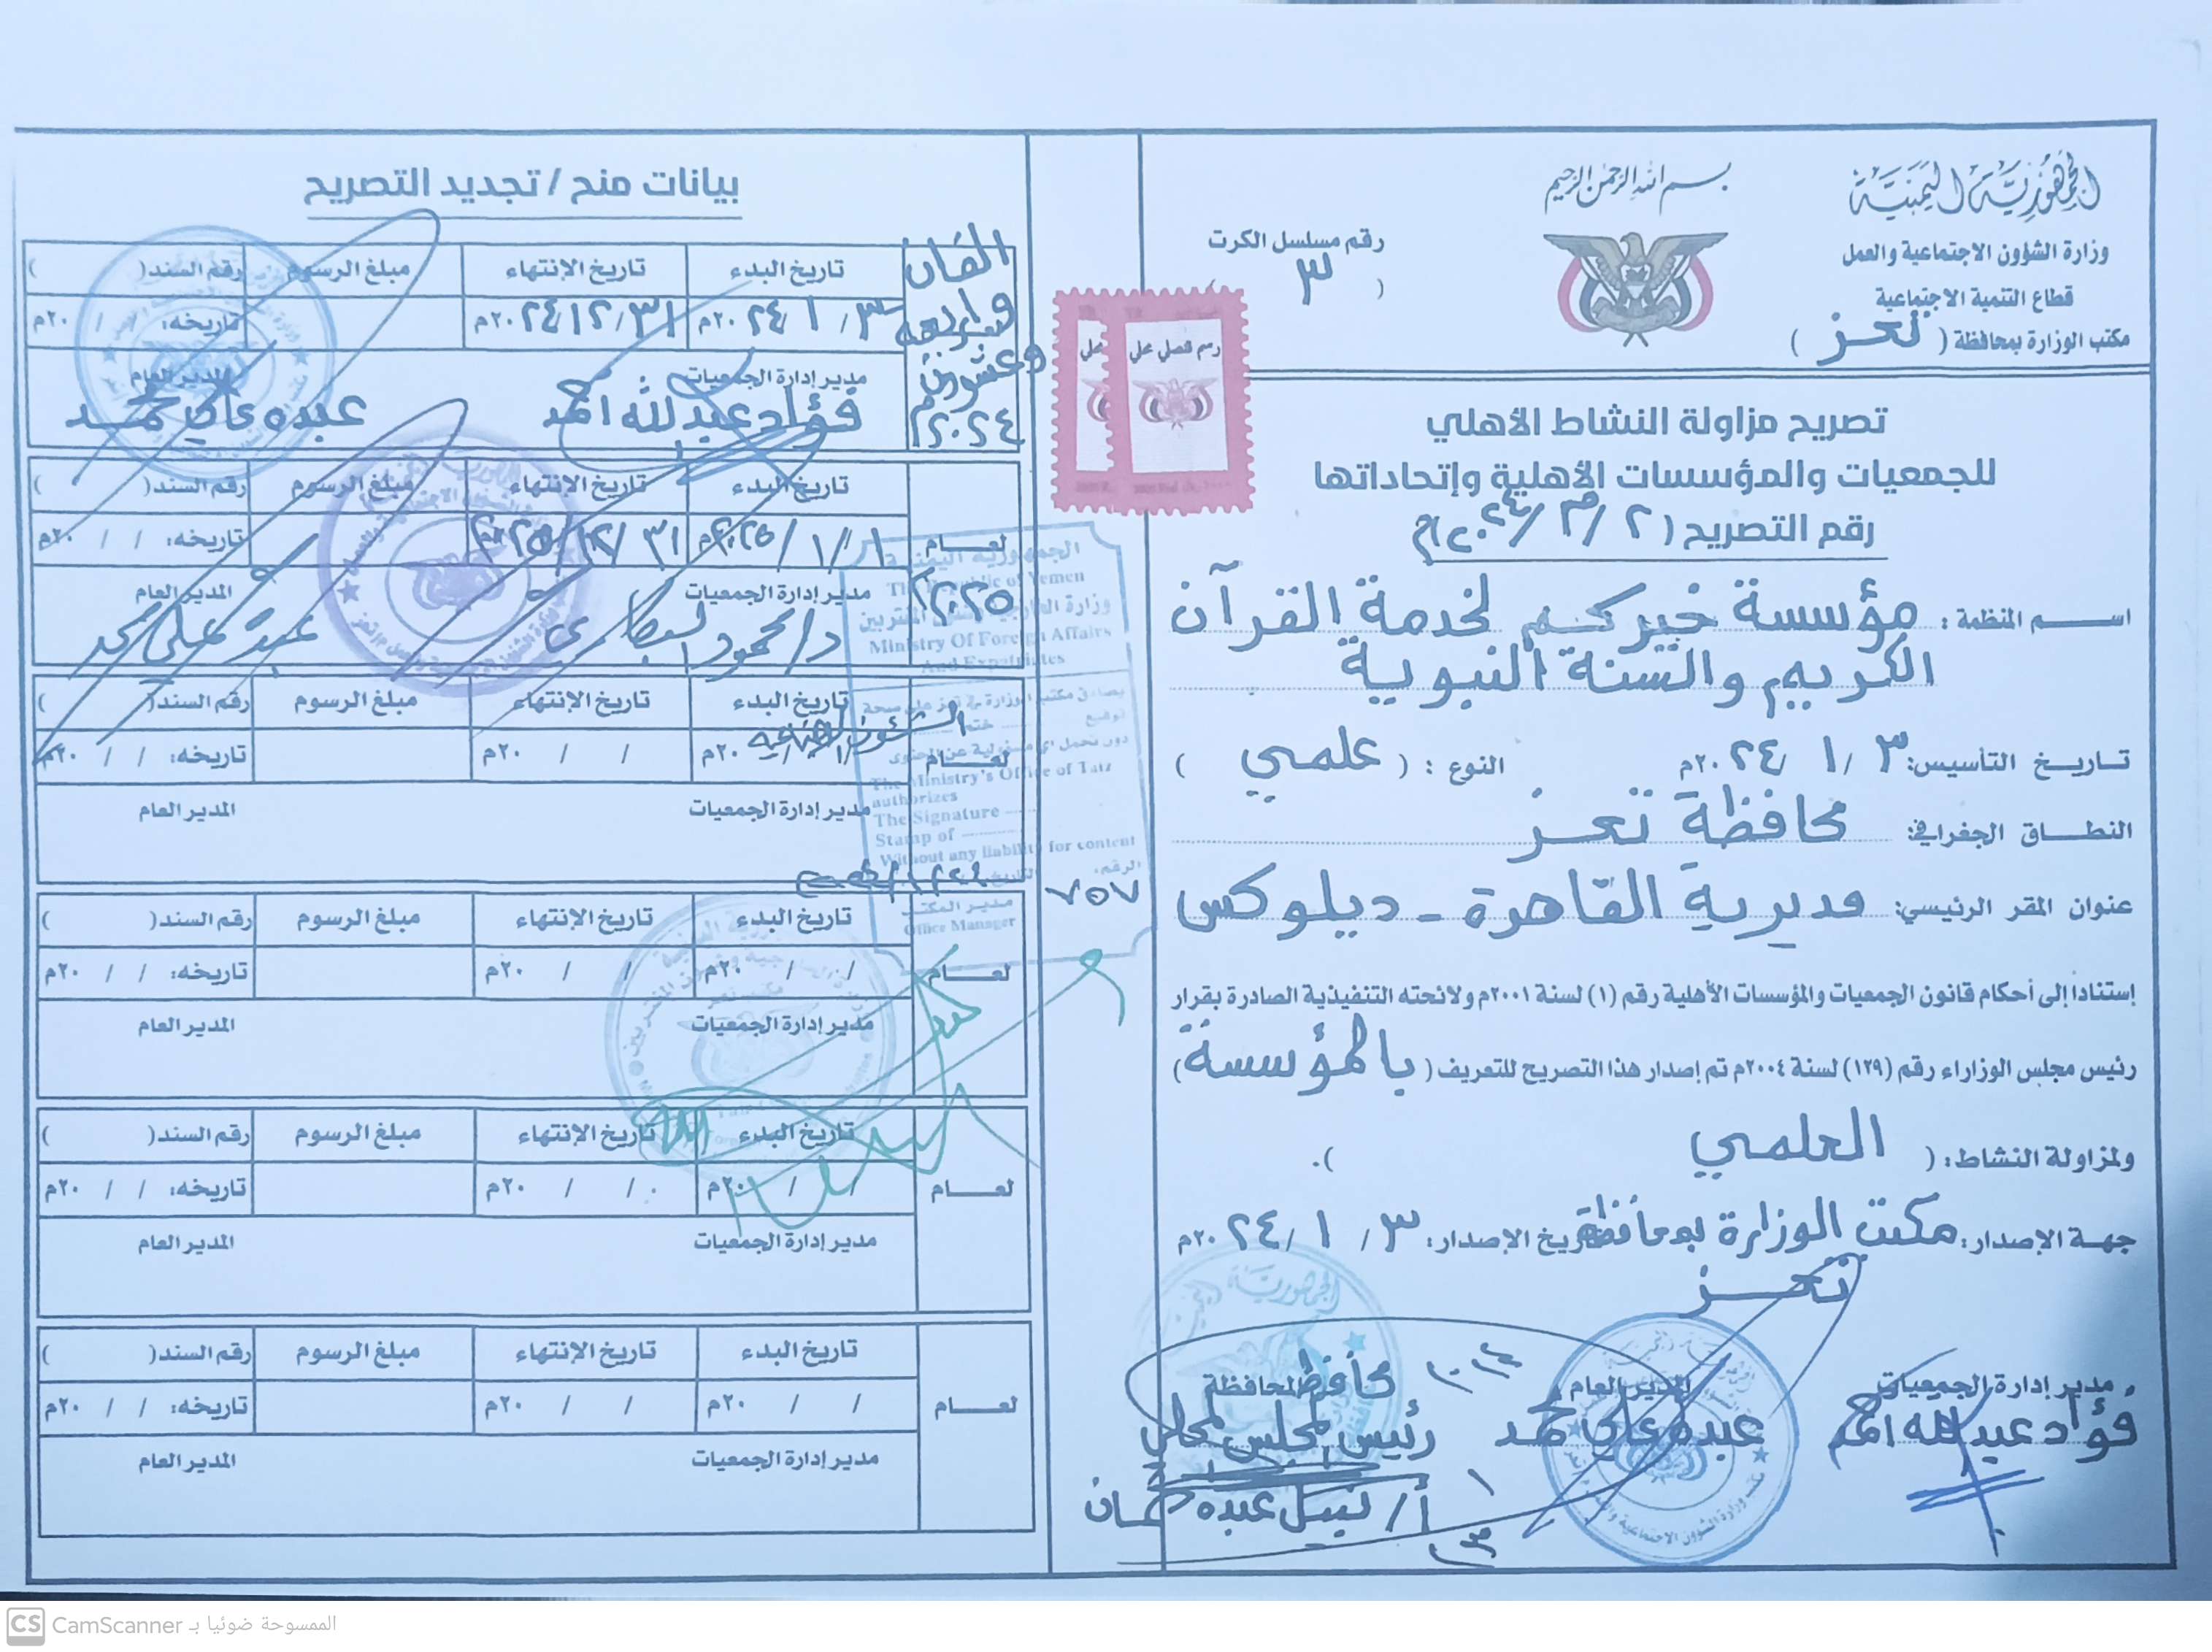 الجمهورية اليمنية
وزارة الشؤون الاجتماعية والعمل
قطاع التنمية الاجتماعية
مكتب الوزارة بمحافظة ( تعز )
بسم الله الرحمن الرحيم
رقم مسلسل الكرت
( ٣ )
رسم قنصلي
تصريح مزاولة النشاط الأهلي
للجمعيات والمؤسسات الأهلية وإتحاداتها
رقم التصريح ( ٢ / ٣ / ٢٠٢٤م)
اســـم المنظمة : مؤسسة خيركم لخدمة القرآن
الكريم والسنة النبوية
تـاريـخ التأسيس: ٣ / ١ / ٢٠٢٤م النوع : ( علمي )
النطـاق الجغرافي: محافظة تعز
عنوان المقر الرئيسي: مديرية القاهرة - ديلوكس
إستنادا إلى أحكام قانون الجمعيات والمؤسسات الأهلية رقم (١) لسنة ٢٠٠١م ولائحته التنفيذية الصادرة بقرار
رئيس مجلس الوزاراء رقم (١٣٩) لسنة ٢٠٠٤م تم إصدار هذا التصريح للتعريف ( بالمؤسسة )
ولمزاولة النشاط: ( العلمي ).
جهـة الإصدار: مكتب الوزارة بمحافظة تاريخ الإصدار: ٣ / ١ / ٢٠٢٤م
تعز
مدير إدارة الجمعيات
فؤاد عبدالله احمد
المدير العام
عبده علي محمد
محافظ المحافظة
رئيس المجلس المحلي
أ/ نبيل عبده شمسان
بيانات منح / تجديد التصريح
الفان واربعه وعشرون ٢٠٢٤م
تاريخ البدء تاريخ الإنتهاء مبلغ الرسوم رقم السند( )
٣ / ١ / ٢٠٢٤م ٣١ / ١٢ / ٢٠٢٤م تاريخه: / / ٢٠م
مدير إدارة الجمعيات المدير العام
فؤاد عبدالله احمد عبده علي محمد
تاريخ البدء تاريخ الإنتهاء مبلغ الرسوم رقم السند( )
لعـــام ٢٠٢٥ ١ / ١ / ٢٠٢٥م ٣١ / ١٢ / ٢٠٢٥م تاريخه: / / ٢٠م
مدير إدارة الجمعيات المدير العام
د/ محمود البكاري عبده علي محمد
تاريخ البدء تاريخ الإنتهاء مبلغ الرسوم رقم السند( )
لعـــام / / ٢٠م / / ٢٠م تاريخه: / / ٢٠م
مدير إدارة الجمعيات المدير العام
تاريخ البدء تاريخ الإنتهاء مبلغ الرسوم رقم السند( )
لعـــام / / ٢٠م / / ٢٠م تاريخه: / / ٢٠م
مدير إدارة الجمعيات المدير العام
تاريخ البدء تاريخ الإنتهاء مبلغ الرسوم رقم السند( )
لعـــام / / ٢٠م / / ٢٠م تاريخه: / / ٢٠م
مدير إدارة الجمعيات المدير العام
تاريخ البدء تاريخ الإنتهاء مبلغ الرسوم رقم السند( )
لعـــام / / ٢٠م / / ٢٠م تاريخه: / / ٢٠م
مدير إدارة الجمعيات المدير العام
الجمهورية اليمنية
The Republic of Yemen
وزارة الخارجية وشئون المغتربين
Ministry Of Foreign Affairs
And Expatriates
يصادق مكتب الوزارة في تعز على صحة
توقيع ختم
دون تحمل اي مسئولية عن المحتوى
The Ministry's Office of Taiz
authorizes
The Signature
Stamp of
Without any liability for content
الرقم: ٧٥٧ التاريخ:
مدير المكتب
Office Manager
CS CamScanner الممسوحة ضوئيا بـ